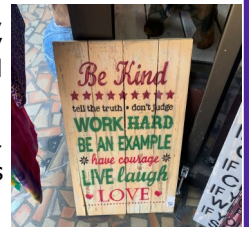 Be Kind
tell the truth • don't judge
WORK HARD
BE AN EXAMPLE
have courage
LIVE laugh
LOVE